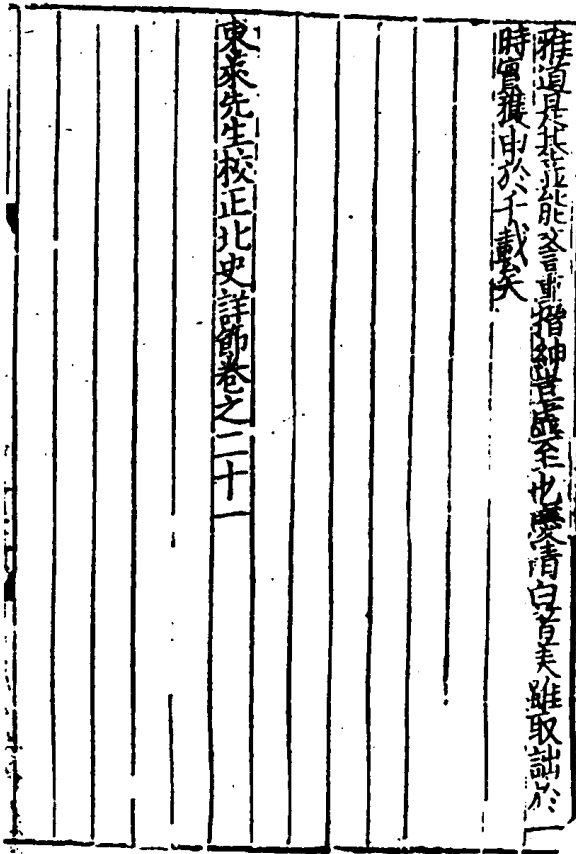 雅道是基並能譽重搢紳豈虛至也慶清白著美雖取詘於
時實獲申於千載矣
東萊先生校正北史詳節卷之二十一